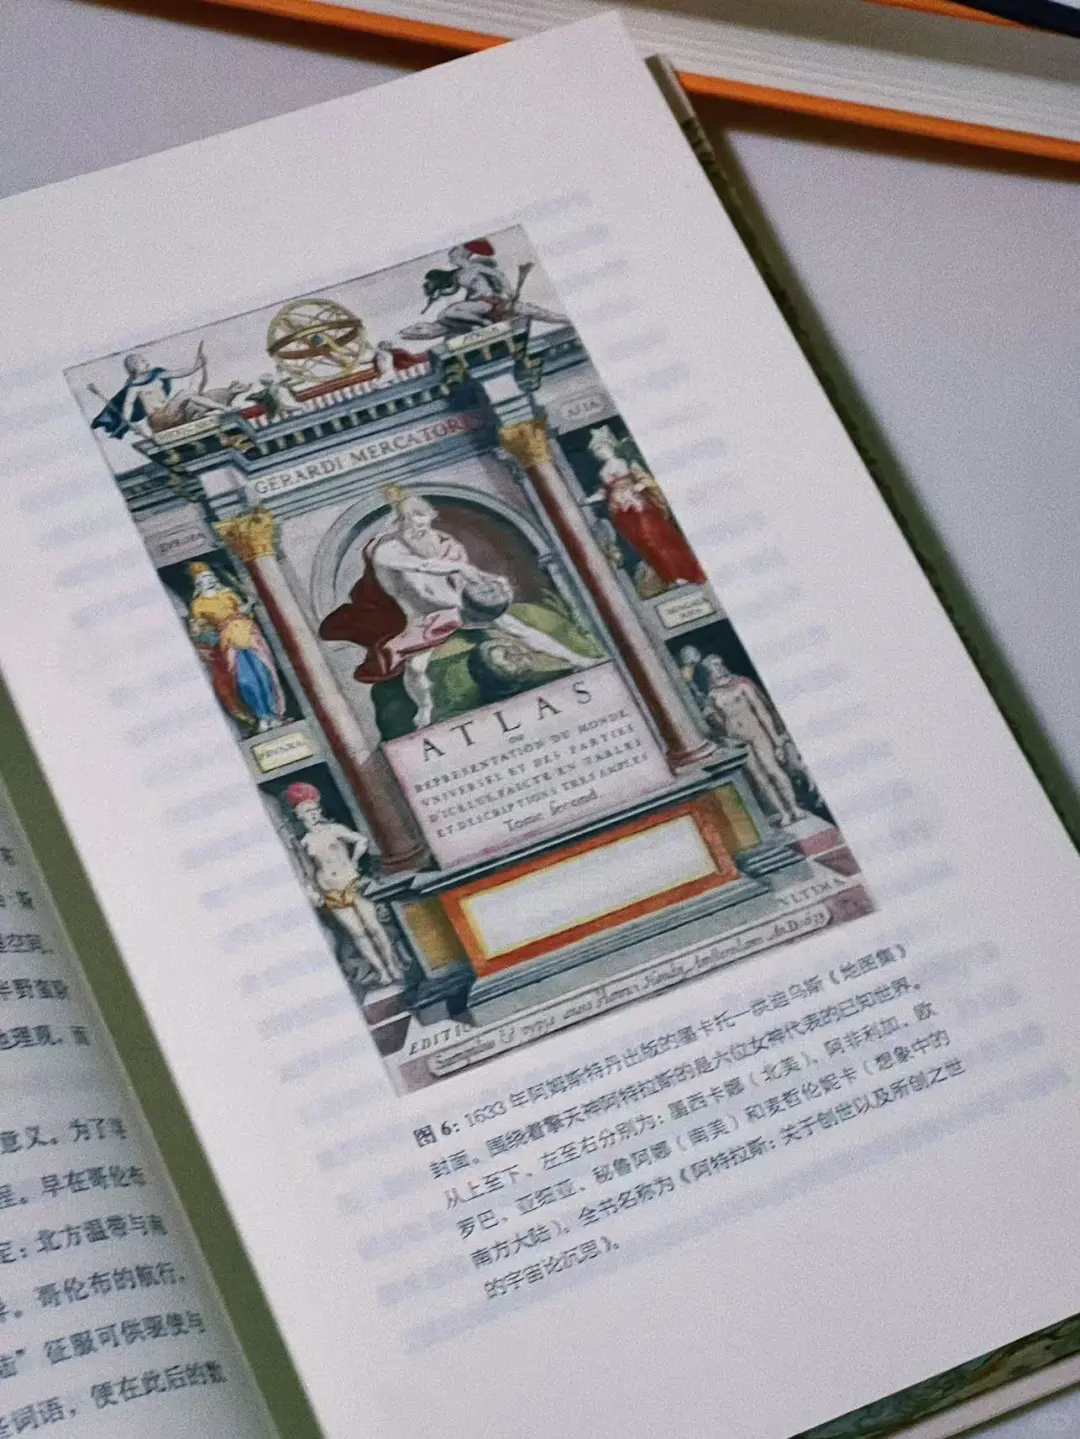 意义。为了寻
程。早在哥伦布
定：北方温带与南
哥伦布的航行，
征服可供驱使与
词语，便在此后的数
AFIA
GERARDI MERCATORIS
EVROPA
ATLAS
OU
REPRESENTATION DU MONDE
VNIVERSEL ET DES PARTIES
D'ICELUI, FAICTE EN TABLES
ET DESCRIPTIONS TRES AMPLES
Tome Second
EDITIO VLTIMA
Sumptibus & typis æneis Henrici Hondij Amsterodami An. D. 1633
图 6：1633 年阿姆斯特丹出版的墨卡托—洪迪乌斯《地图集》
封面。围绕着擎天神阿特拉斯的是六位女神代表的已知世界。
从上至下、左至右分别为：墨西卡娜（北美）、阿非利加、欧
罗巴、亚细亚、秘鲁阿娜（南美）和麦哲伦妮卡（想象中的
南方大陆）。全书名称为《阿特拉斯：关于创世以及所创之世
的宇宙论沉思》。